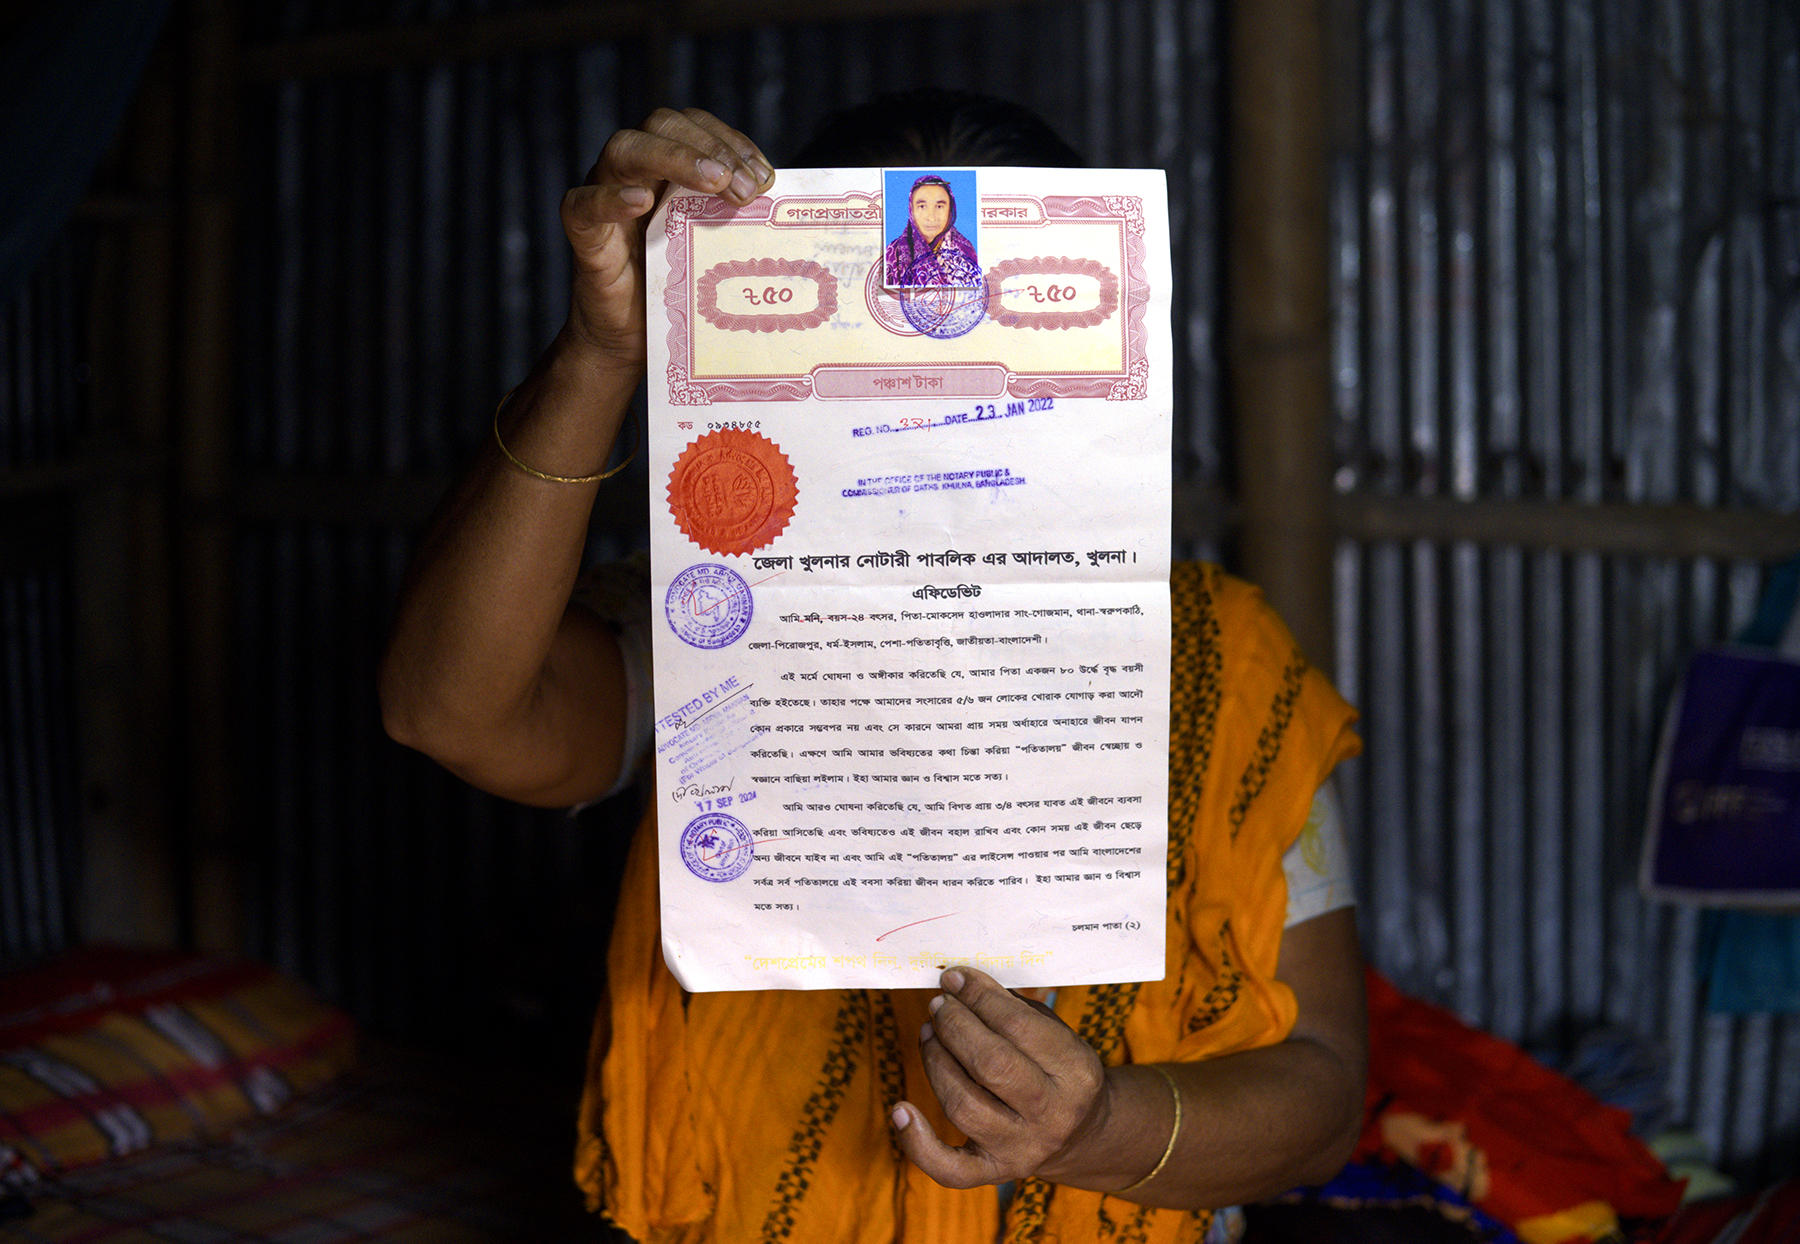 গণপ্রজাতন্ত্রী সরকার
৳৫০ ৳৫০
পঞ্চাশ টাকা
REG. NO. DATE 23 JAN 2022
কড ০৯৩৪৮৫৫
IN THE OFFICE OF THE NOTARY PUBLIC &
COMMISSIONER OF OATHS. KHULNA, BANGLADESH.
জেলা খুলনার নোটারী পাবলিক এর আদালত, খুলনা।
এফিডেভিট
আমি মনি, বয়স-২৪ বৎসর, পিতা-মোকসেদ হাওলাদার সাং-গোজমান, থানা-স্বরুপকাঠি,
জেলা-পিরোজপুর, ধর্ম-ইসলাম, পেশা-পতিতাবৃত্তি, জাতীয়তা-বাংলাদেশী।
এই মর্মে ঘোষনা ও অঙ্গীকার করিতেছি যে, আমার পিতা একজন ৮০ উর্দ্ধে বৃদ্ধ বয়সী
ব্যক্তি হইতেছে। তাহার পক্ষে আমাদের সংসারের ৫/৬ জন লোকের খোরাক যোগাড় করা আদৌ
কোন প্রকারে সম্ভবপর নয় এবং সে কারনে আমরা প্রায় সময় অর্ধাহারে অনাহারে জীবন যাপন
করিতেছি। এক্ষণে আমি আমার ভবিষ্যতের কথা চিন্তা করিয়া “পতিতালয়” জীবন স্বেচ্ছায় ও
স্বজ্ঞানে বাছিয়া লইলাম। ইহা আমার জ্ঞান ও বিশ্বাস মতে সত্য।
আমি আরও ঘোষনা করিতেছি যে, আমি বিগত প্রায় ৩/৪ বৎসর যাবত এই জীবনে ব্যবসা
করিয়া আসিতেছি এবং ভবিষ্যতেও এই জীবন বহাল রাখিব এবং কোন সময় এই জীবন ছেড়ে
অন্য জীবনে যাইব না এবং আমি এই “পতিতালয়” এর লাইসেন্স পাওয়ার পর আমি বাংলাদেশের
সর্বত্র সর্ব পতিতালয়ে এই ববসা করিয়া জীবন ধারন করিতে পারিব। ইহা আমার জ্ঞান ও বিশ্বাস
মতে সত্য।
চলমান পাতা (২)
“দেশপ্রেমের শপথ নিন, দুর্নীতিকে বিদায় দিন”
ATTESTED BY ME
17 SEP 2024